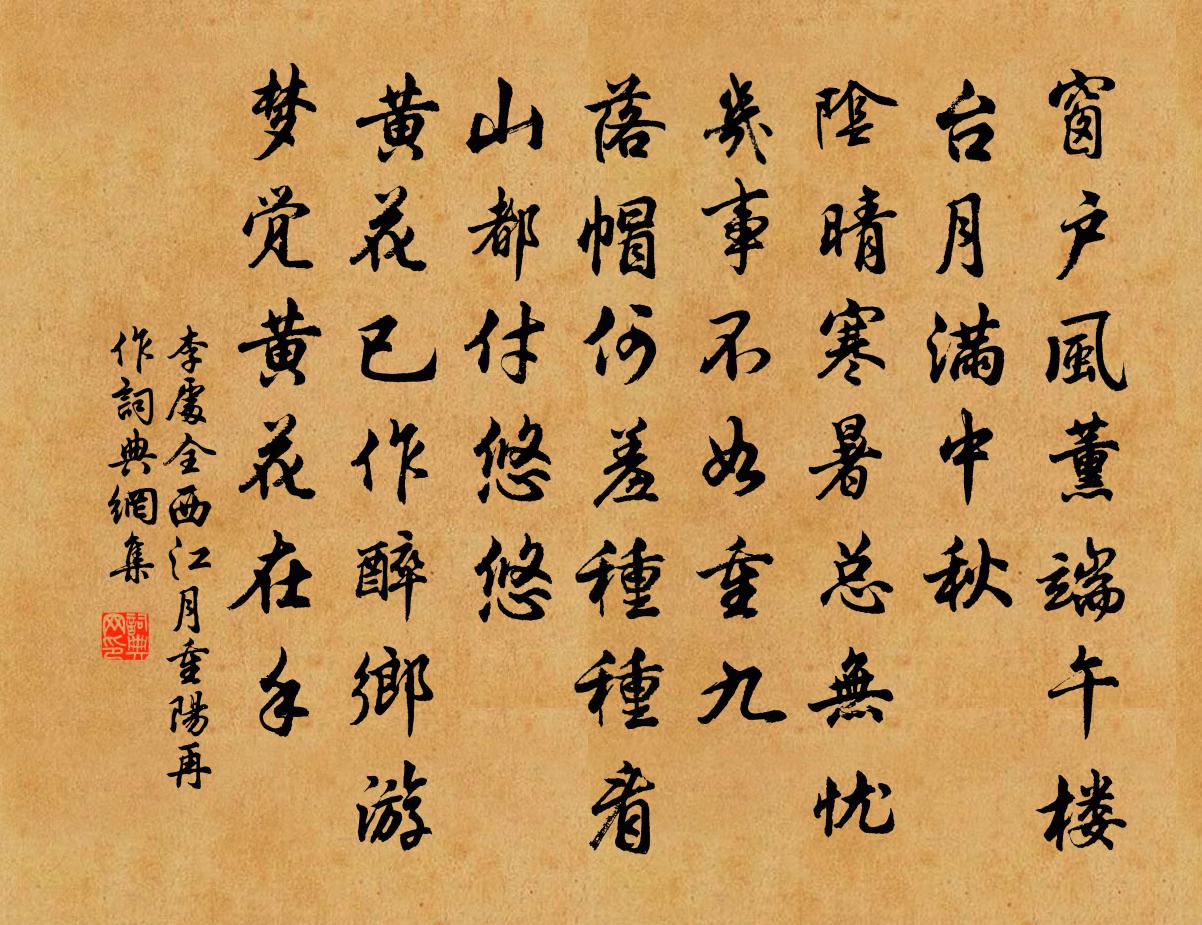 窗户風薰端午楼
台月滿中秋
陰晴寒暑总無忧
幾事不如重九
落帽何羞種種看
山都付悠悠
黄花已作醉鄉游
梦觉黄花在手
李處全西江月重陽再
作詞典網集
詞典网印